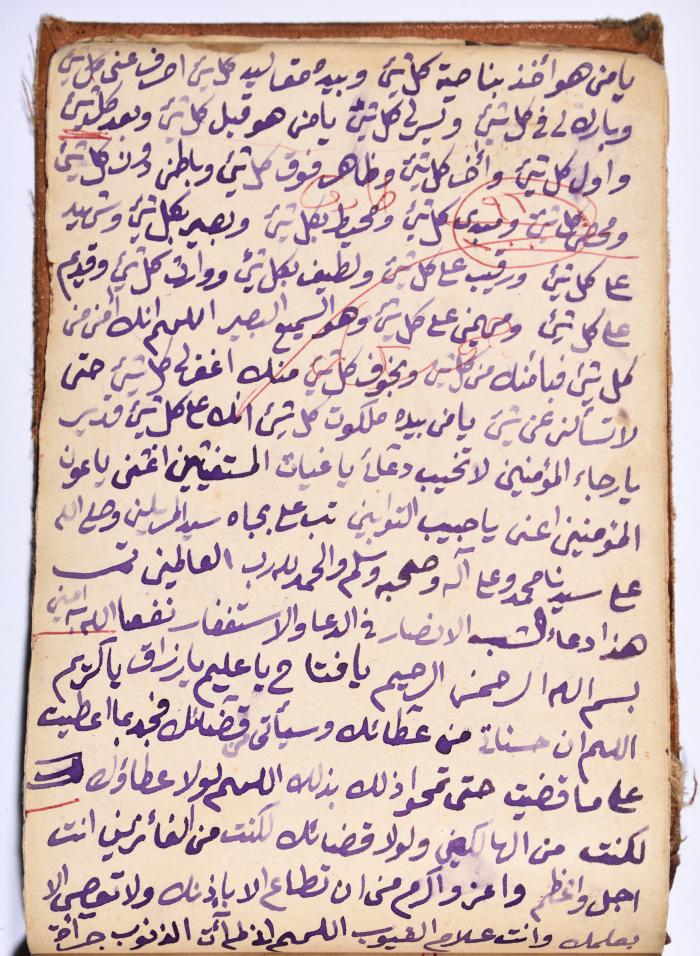 يا من هو آخذ بناصية كل شئ وبيده مقاليد كل شئ اصرف عنى كل شئ
وبارك لى فى كل شئ ويسر لى كل شئ يا من هو قبل كل شئ وبعد كل شئ
واول كل شئ وآخر كل شئ وظاهر فوق كل شئ وباطن دون كل شئ
ومحصى كل شئ ومبدى كل شئ ومحيط بكل شئ وبصير بكل شئ وشهيد
على كل شئ ورقيب على كل شئ ولطيف بكل شئ ووارث كل شئ وقديم
على كل شئ ومهيمن على كل شئ وهو السميع البصير اللهم انك آمن من
كل شئ فبأمنك من كل شئ وبخوف كل شئ منك اغفر لى كل شئ حتى
لا تسألنى عن شئ يا من بيده ملكوت كل شئ انك على كل شئ قدير
يا رجاء المؤمنين لا تخيب دعائى يا غياث المستغيثين اغثنى يا عون
المؤمنين اعنى يا حبيب التوابين تب على بجاه سيد المرسلين وصلى الله
على سيدنا محمد وعلى آله وصحبه وسلم والحمد لله رب العالمين تمت
هذا دعاء لشهب الانصار فى الدعا والاستغفار نفعنا الله به امين
بسم الله الرحمن الرحيم يا فتاح يا عليم يا رزاق يا كريم
اللهم ان حسناتى من عطائك وسيأتى من قضائك فجد بما اعطيت
على ما قضيت حتى تمحوا ذلك بذلك اللهم لولا عطاؤك
لكنت من الهالكين ولولا قضائك لكنت من الفائزين انت
اجل واعظم واعز واكرم من ان تطاع الا باذنك ولا تعصى الا
بعلمك وانت علام الغيوب اللهم الذنوب جراءة